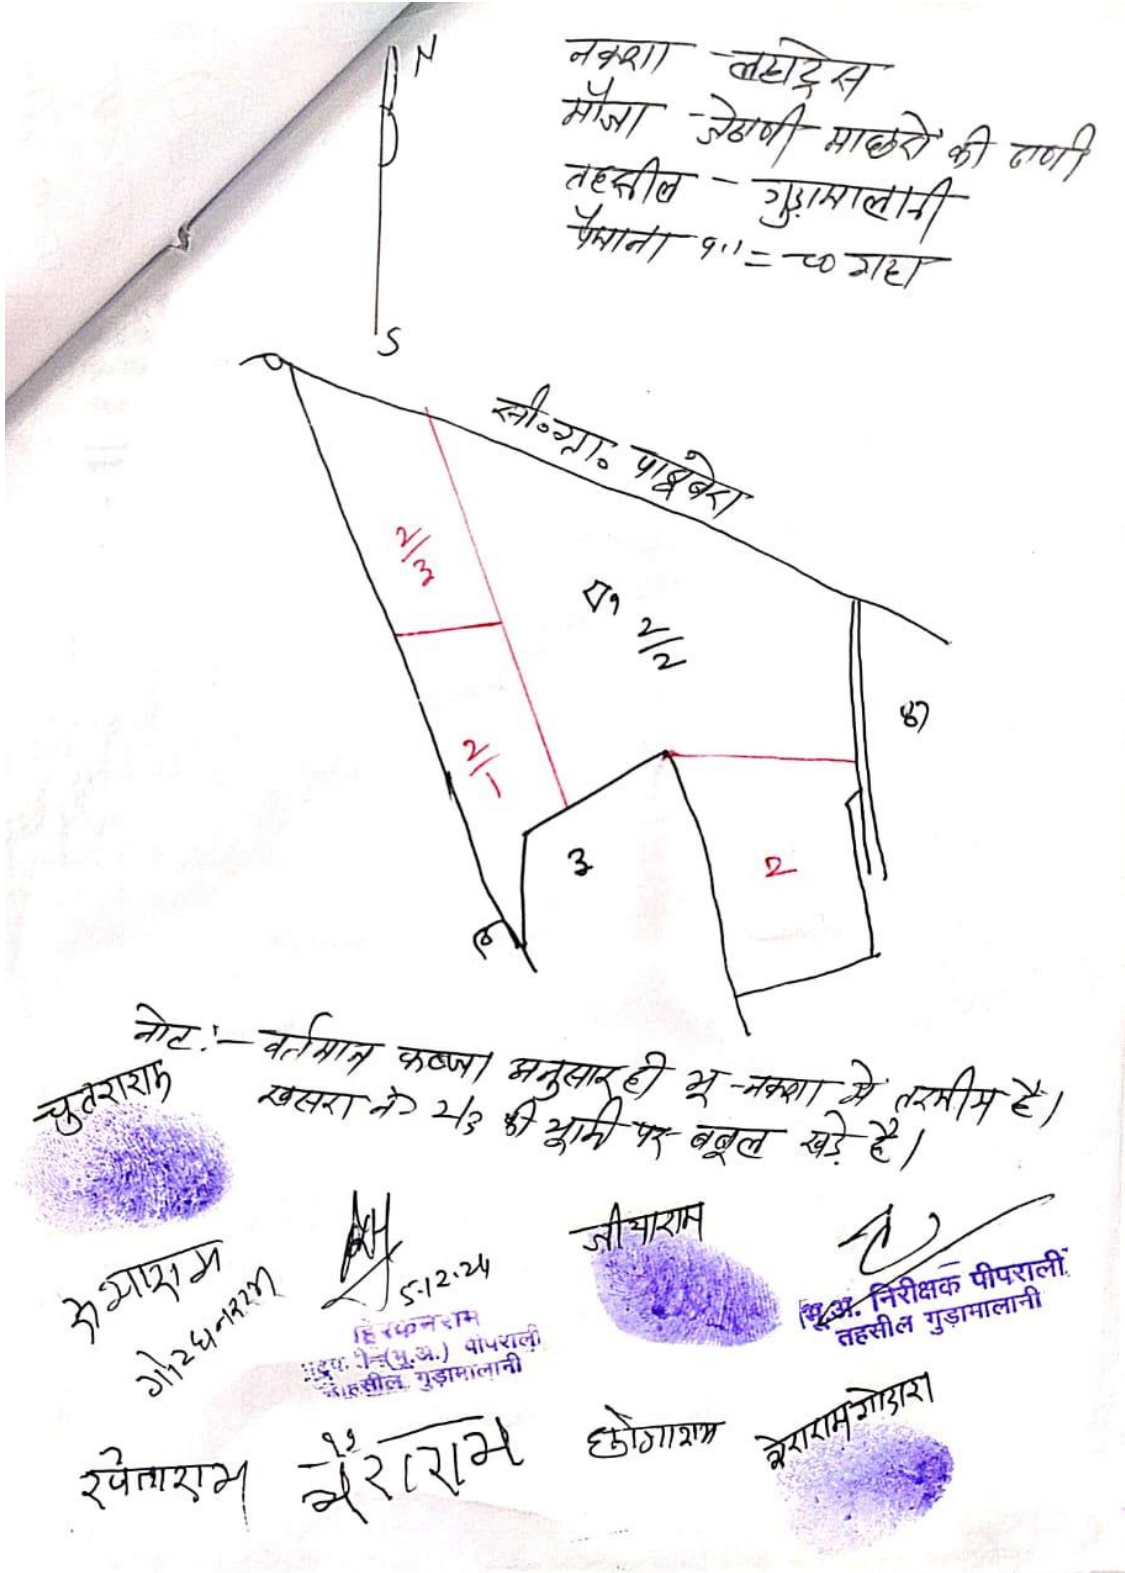 N
S
नक्शा - लठ्ठाट्रेस
मौजा - जेठाणी माछरों की ढाणी
तहसील - गुड़ामालानी
पैमाना १" = ८० गट्ठा
सी॰ग्रा॰ पाबूबेरा
2/3
१
2/2
2/1
3
2
नोट:- वर्तमान कब्जा अनुसार ही भू-नक्शा मे तरमीम है।
खसरा नं 2/3 की भूमि पर बबूल खड़े है।
चुतराराम
जीयाराम
गोरधनराम
5.12.24
(भू.अ.) पीपराली
तहसील गुड़ामालानी
भू.अ. निरीक्षक पीपराली
तहसील गुड़ामालानी
खेताराम
भैराराम
छोगाराम
भेराराम गोदारा